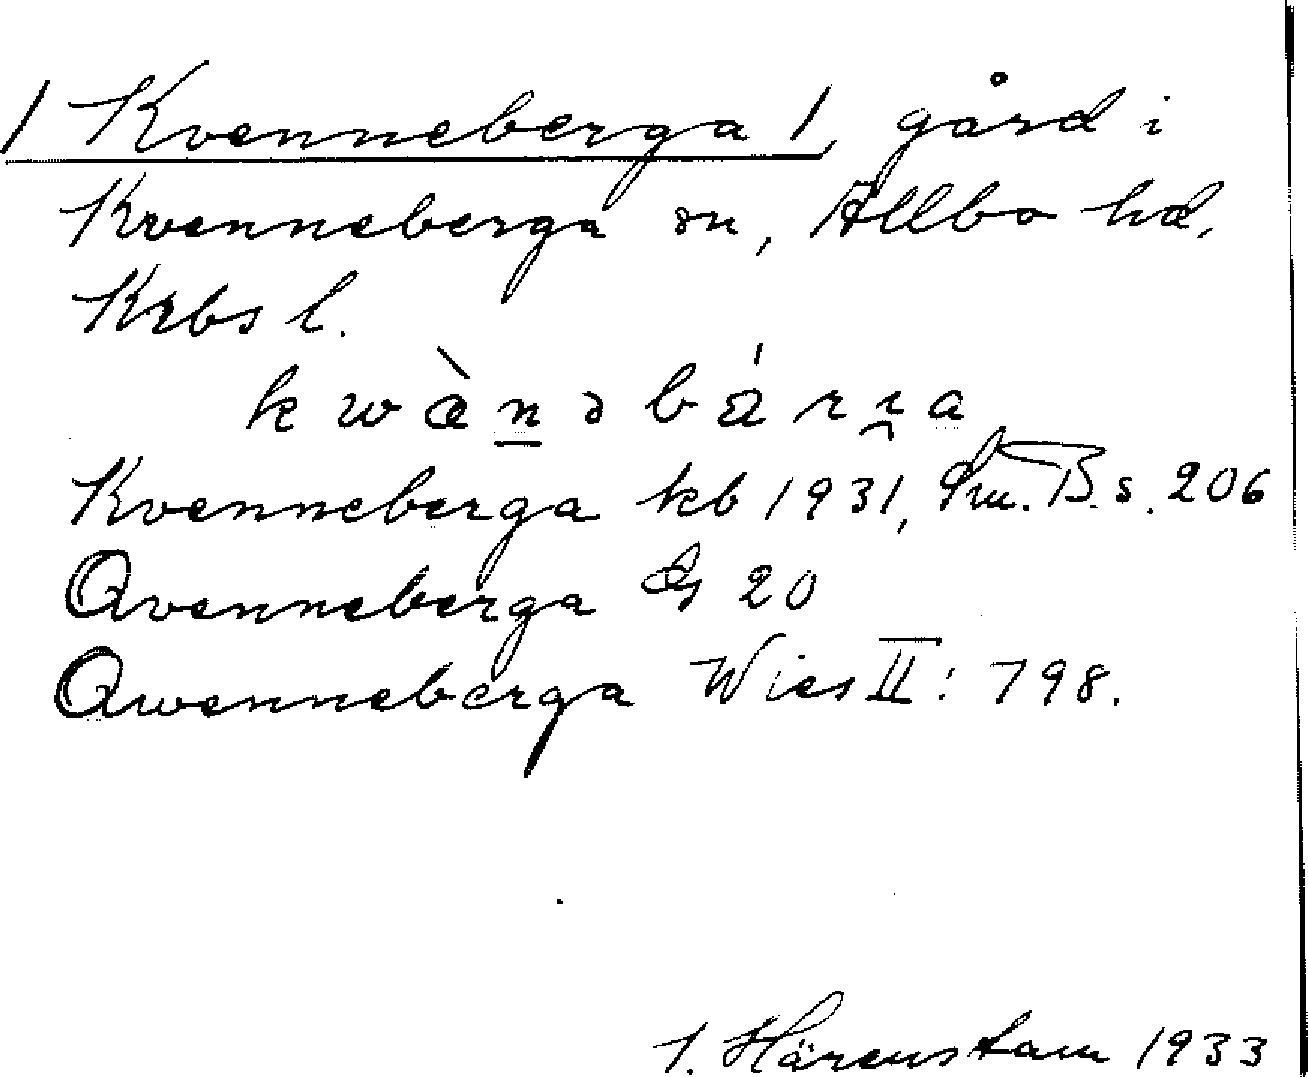 / Kvenneberga /, gård i
Kvenneberga sn, Allbo hd,
Krbs l.
kwæ̀nəbárɪa
Kvenneberga kb 1931, Sm. B. s. 206
Qvenneberga Gs 20
Qwenneberga Wies II: 798.
J. Härenstam 1933